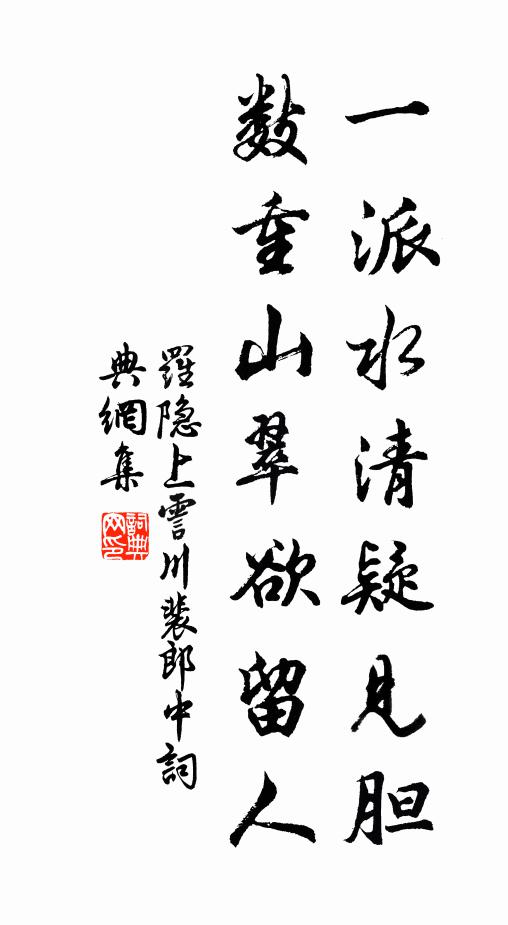 一派水清疑见胆
数重山翠欲留人
羅隐上霅川裴郎中詞
典網集
詞典网印